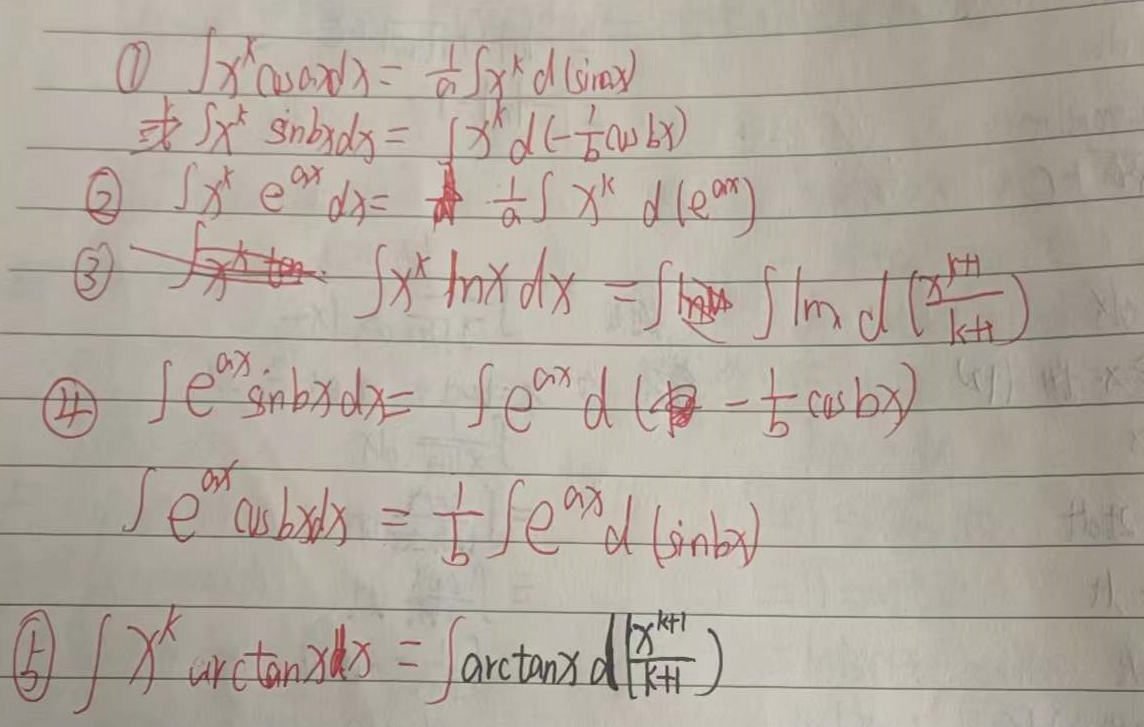 ① ∫x^k cosaxdx = 1/a ∫x^k d(sinax)
或 ∫x^k sinbxdx = ∫x^k d(-1/b cosbx)
② ∫x^k e^ax dx = 1/a ∫ x^k d(e^ax)
③ ∫x^k lnx dx = ∫ ∫lnx d(x^k+1/k+1)
④ ∫e^ax sinbxdx = ∫e^ax d(-1/b cosbx)
∫e^ax cosbxdx = 1/b ∫e^ax d(sinbx)
⑤ ∫x^k arctanxdx = ∫arctanx d(x^k+1/k+1)